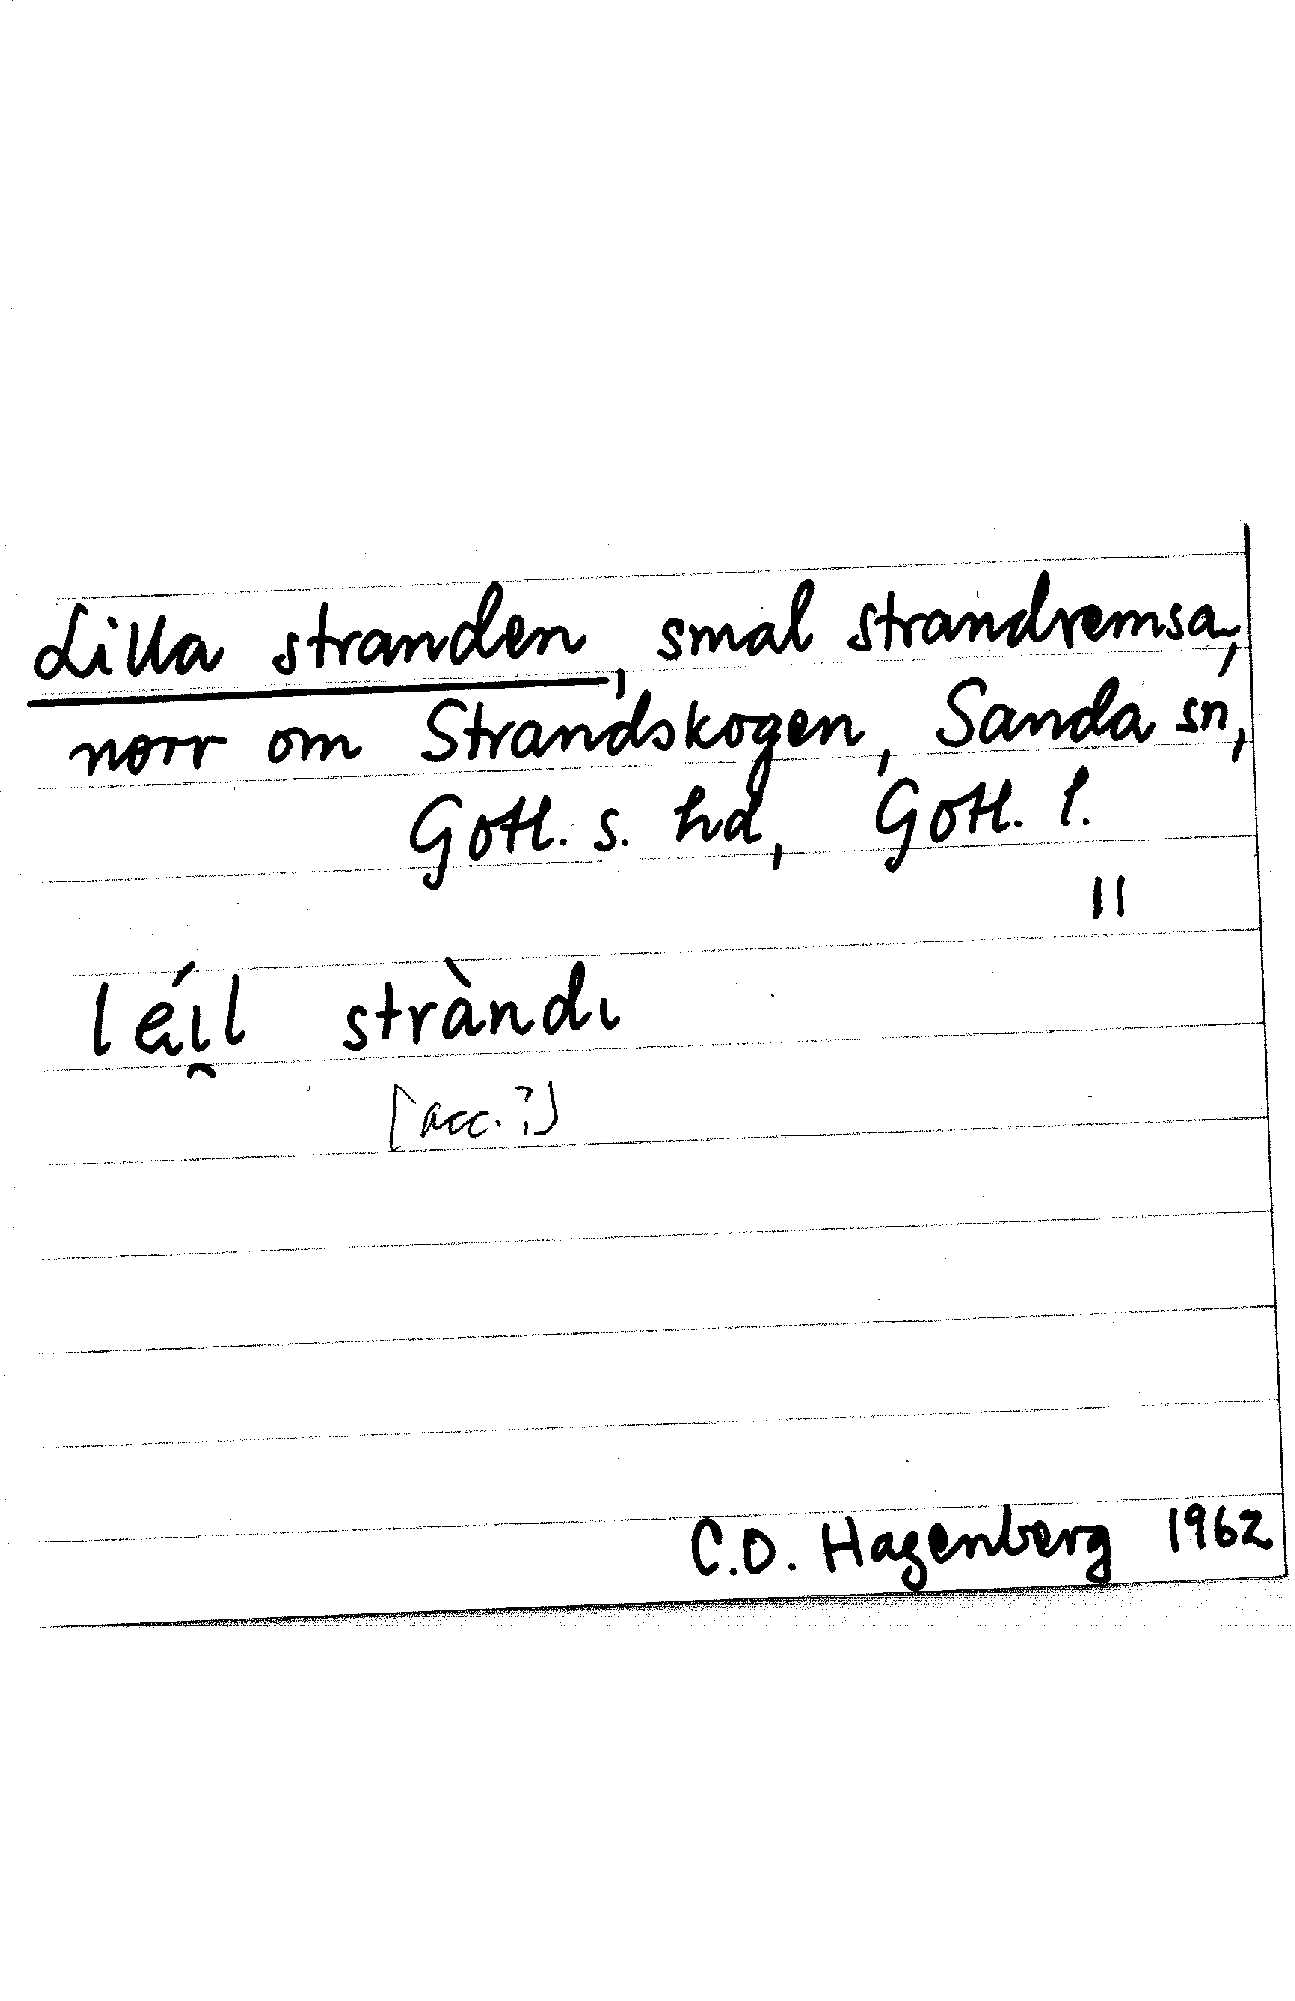 Lilla stranden, smal strandremsa,
norr om Strandskogen, Sanda sn,
Gotl. s. hd, Gotl. l.
11
léı̯l stràndı
[acc.?]
C.O. Hagenberg 1962